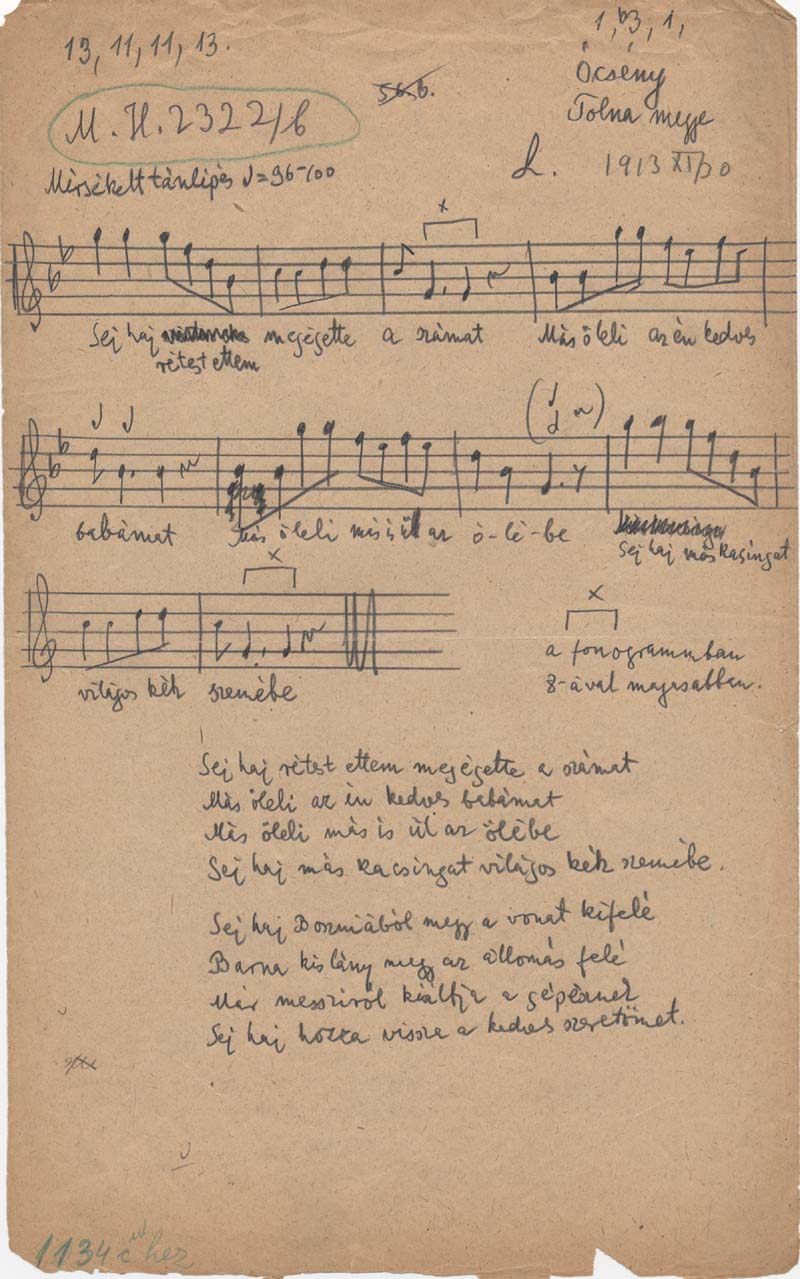 13, 11, 11, 13.
1, b3, 1,
Őcsény
Tolna megye
56.b.
M.H.2322/b
L. 1913 XI/30
Mérsékelt tánclépés ♩=96-100
x
Sej haj megégette a számat Más öleli az én kedves
rétest ettem
babámat Más öleli más is ül az ö-lé-be
Sej haj más kacsingat
x
világos kék szemébe
x
a fonogrammban
8-ával magasabban.
Sej haj rétest ettem megégette a számat
Más öleli az én kedves babámat
Más öleli más is ül az ölébe
Sej haj más kacsingat világos kék szemébe.
Sej haj Boszniából megy a vonat kifelé
Barna kislány megy az állomás felé
Már messziről kiáltja a gépésznek
Sej haj hozza vissza a kedves szeretőmet.
1134c hez